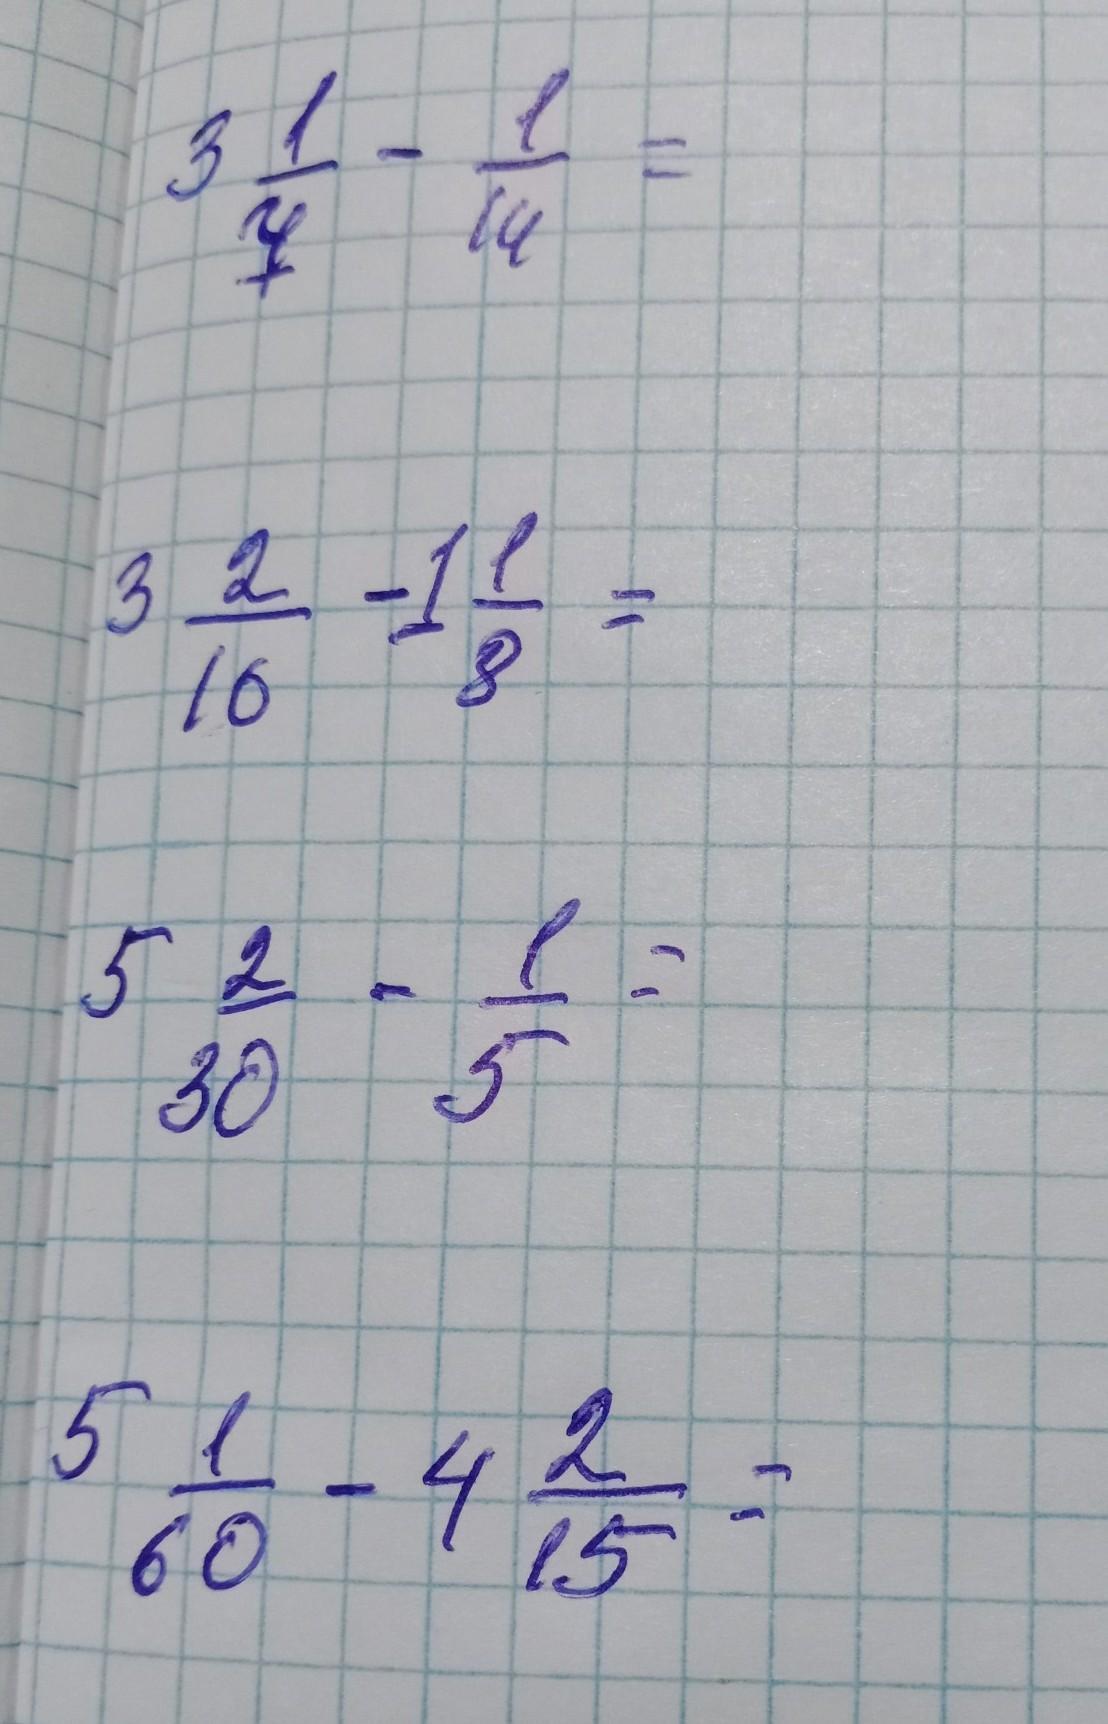 3 1/7 - 1/14 =
3 2/16 - 1 1/8 =
5 2/30 - 1/5 =
5 1/60 - 4 2/15 =